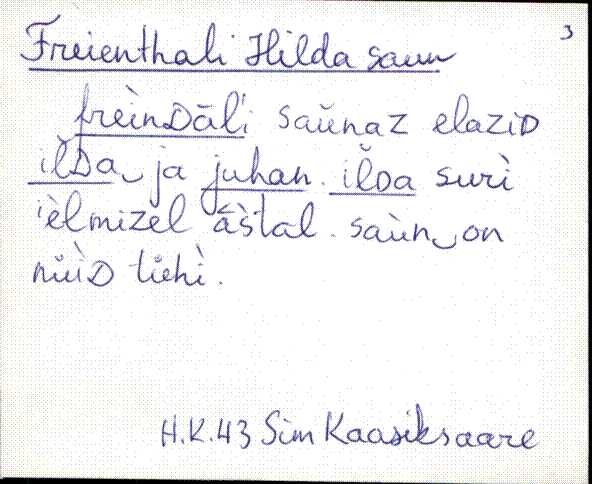 3
Freienthali Hilda saun
frèinDāl'i saŭnaz elaziD
il̆Da‿ ja juhan. il̆Da surì
ièlmizel ā̀stal. saùn‿on
nüìD tühì.
H.K.43 Sim Kaasiksaare